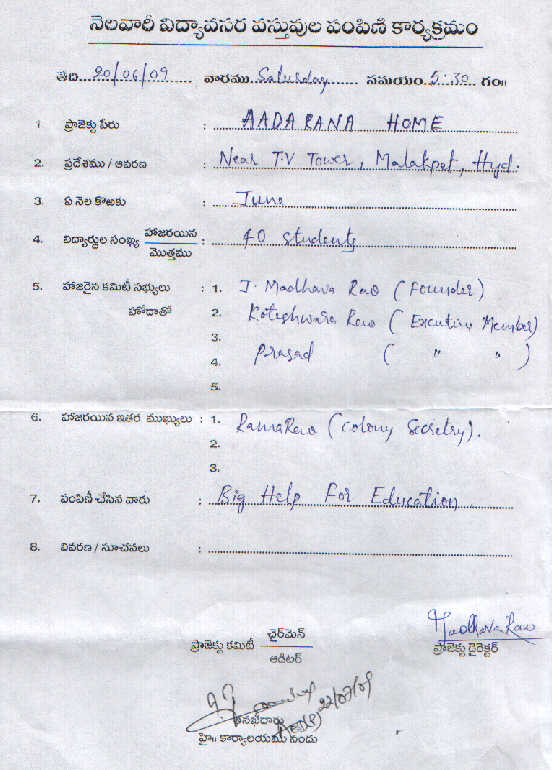 నెలవారీ విద్యావసర వస్తువుల పంపిణి కార్యక్రమం
తేది 20/06/09 వారము Saturday సమయం 5:30 గం॥
1. ప్రాజెక్టు పేరు : AADARANA HOME
2. ప్రదేశము / ఆవరణ : Near T.V Tower, Malakpet, Hyd.
3. ఏ నెల కొఱకు : June
4. విద్యార్థుల సంఖ్య హాజరయిన : 40 students
మొత్తము
5. హాజరైన కమిటీ సభ్యులు : 1. J. Madhava Rao (Founder)
హోదాతో 2. Koteshwara Rao (Executive Member)
3.
4. Prasad ( " " )
5.
6. హాజరయిన ఇతర ముఖ్యులు : 1. RamaRao (Colony Secretry).
2.
3.
7. పంపిణీ చేసిన వారు : Big Help For Education
8. వివరణ / సూచనలు :
MadhavaRao
ప్రాజెక్టు కమిటీ చైర్మెన్ ప్రాజెక్టు డైరెక్టర్
ఆడిటర్
22/07/09
తనఖీదారు
హై॥ కార్యాలయము నందు